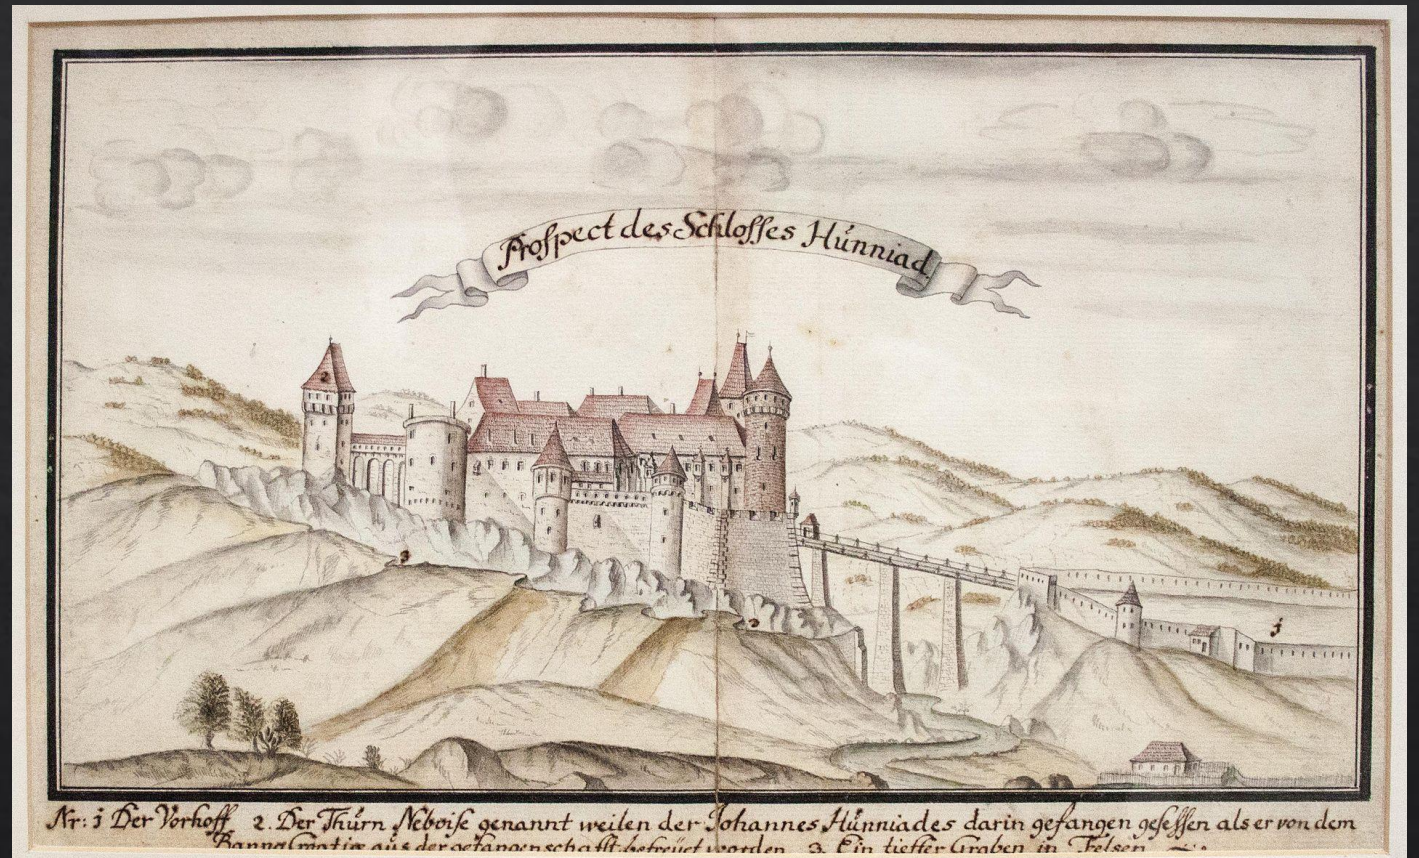 Prospect des Schlosses Hünniad.
2
3
3
j
Nr: j Der Vorhoff 2. Der Thürn Neboise genannt weilen der Johannes Hünniades darin gefangen gesessen als er von dem
Banna Croatiæ aus der gefangenschafft befreüct worden 3. Ein tieffer Graben in Felsen